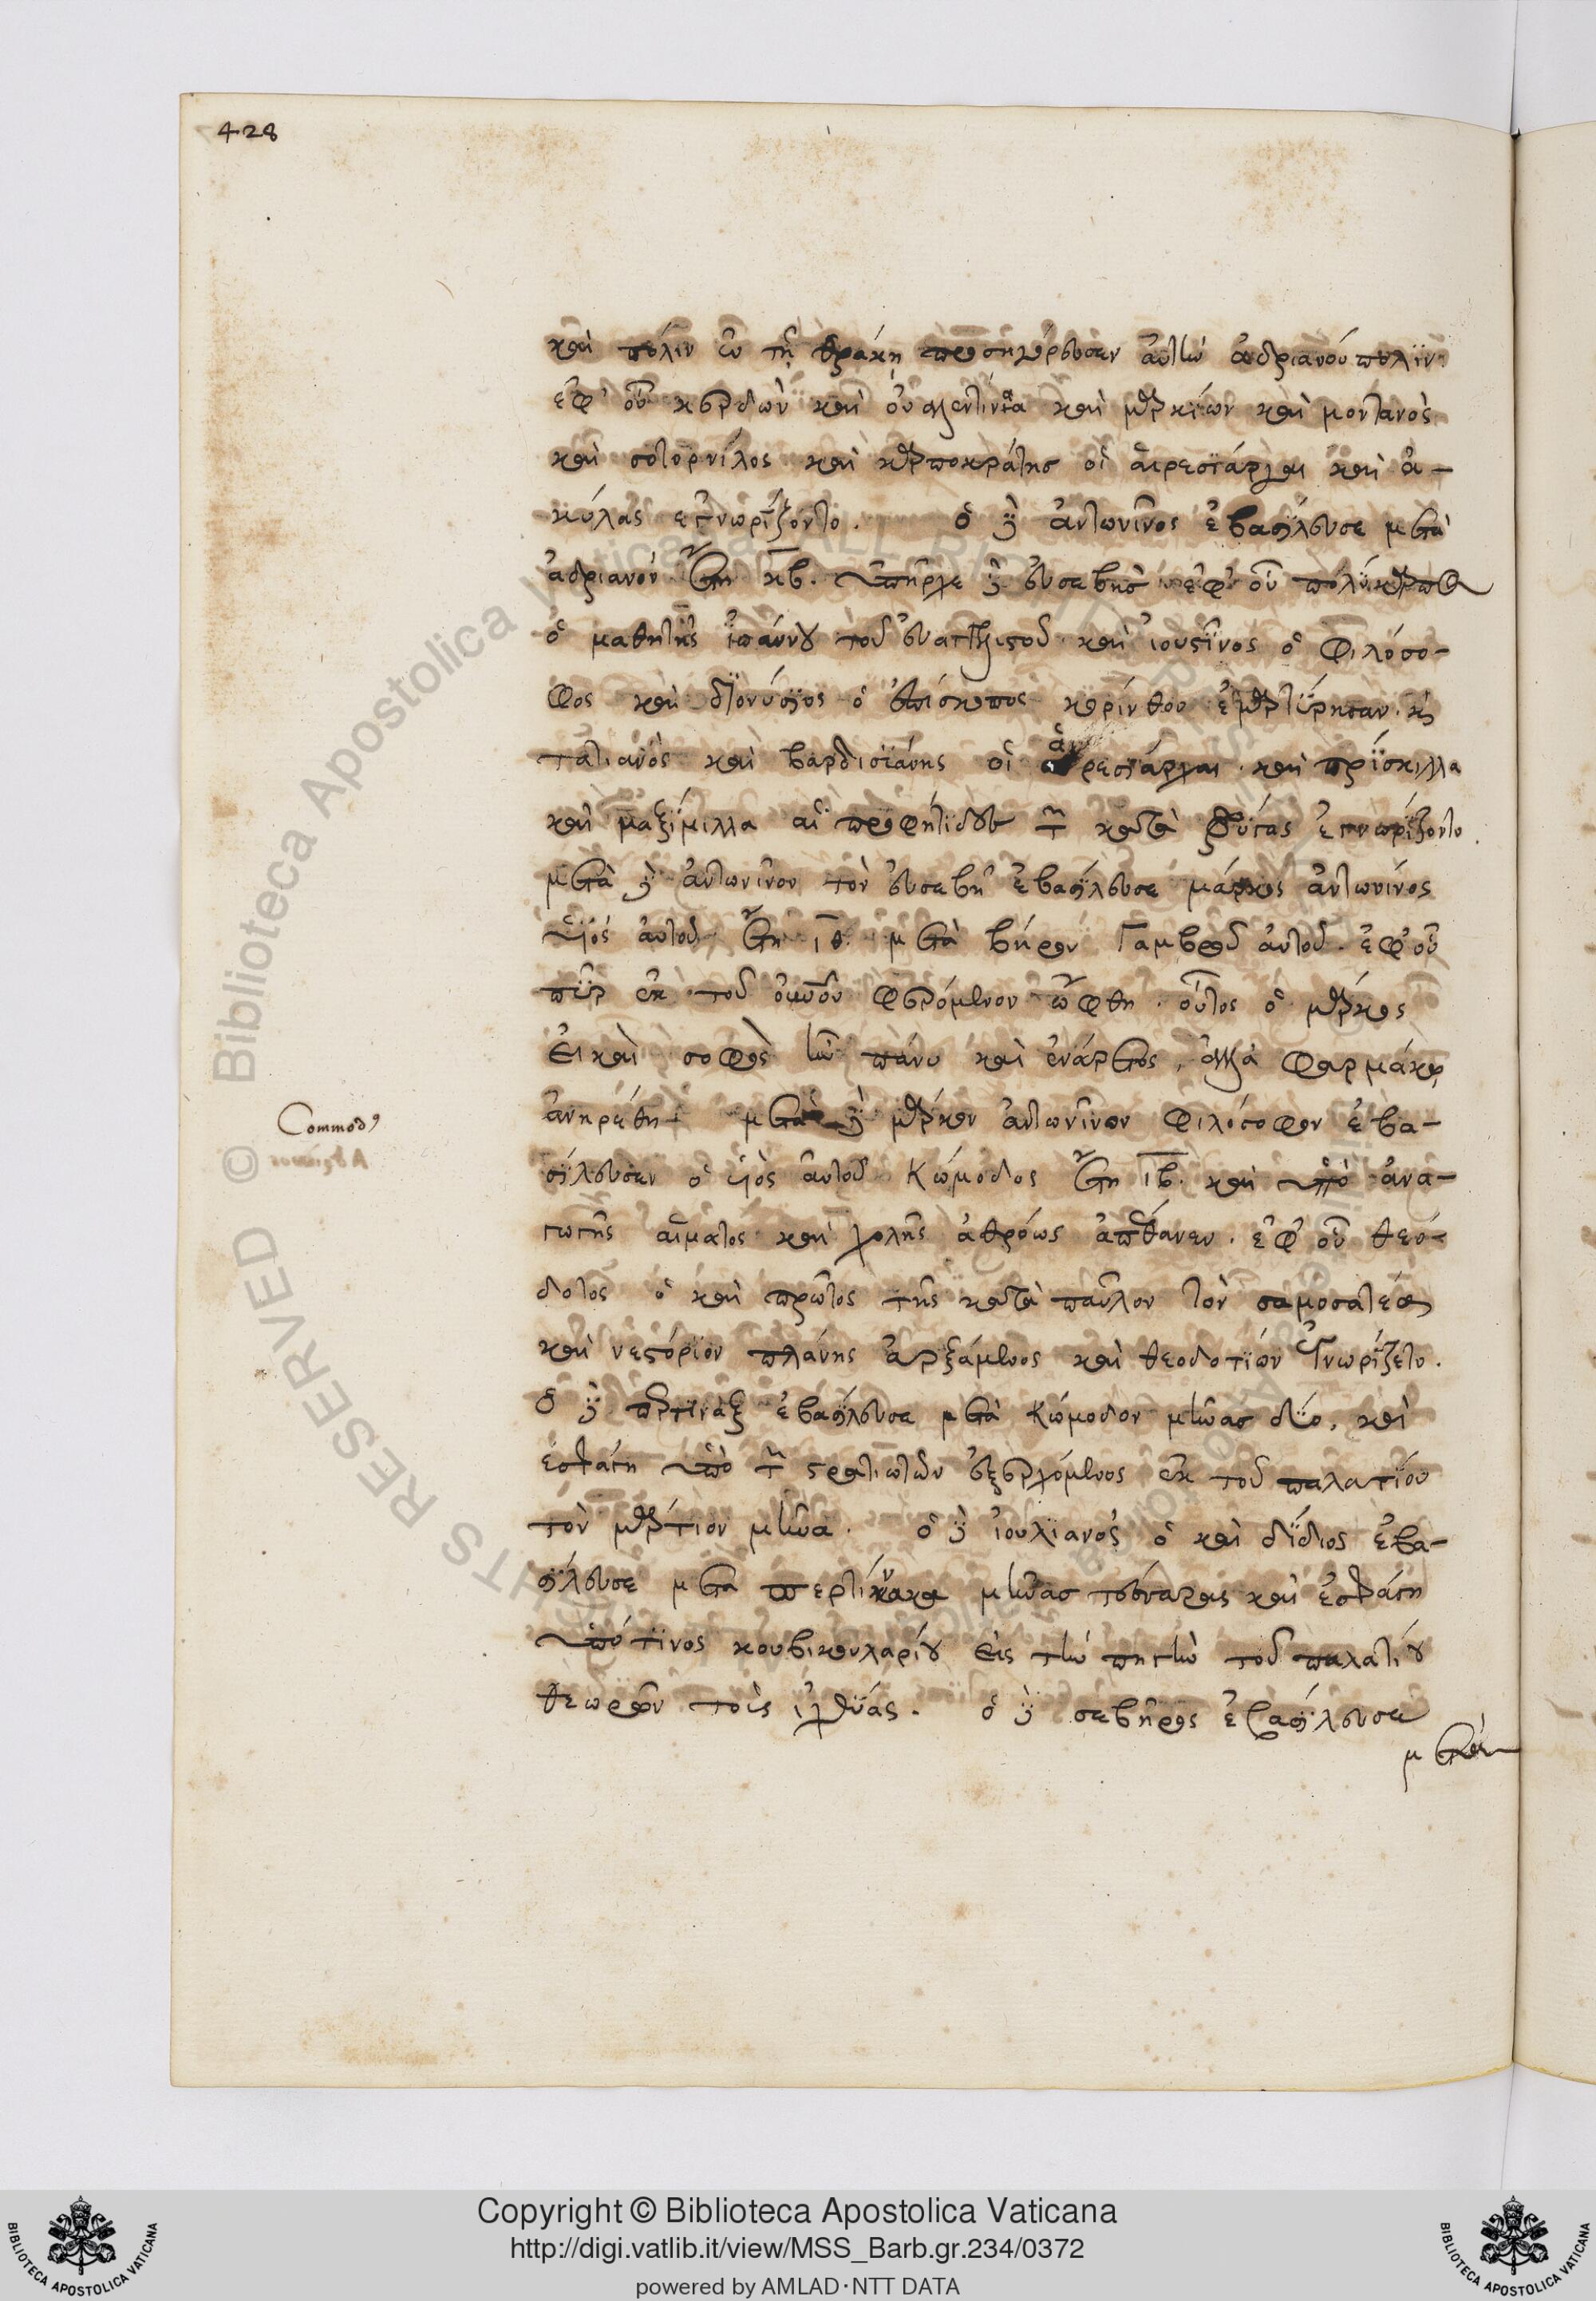 428
καὶ πόλιν ἐν τῇ θράκῃ προσηγόρευσεν αὐτὴν ἀδριανούπολιν
ἐφ' οὗ κερδὼν καὶ καὶ μαρκίων καὶ μοντανὸς
καὶ σατορνίλος καὶ καρποκράτης οἱ αἱρεσιάρχαι καὶ ἀ-
κύλας ἐγνωρίζοντο. ὁ δὲ ἀντωνῖνος ἐβασίλευσε μετὰ
ἀδριανὸν ἔτη κβ. ὑπῆρχε δὲ εὐσεβὴς ἐφ' οὗ πολύκαρπος
ὁ μαθητὴς ἰωάννου τοῦ εὐαγγελιστοῦ καὶ ἰουστῖνος ὁ φιλόσο-
φος καὶ διονύσιος ὁ ἐπίσκοπος κορίνθου ἐμαρτύρησαν. καὶ
τατιανὸς καὶ βαρδισιάνης οἱ αἱρεσιάρχαι. καὶ πρίσκιλλα
καὶ μαξίμιλλα αἱ προφήτιδες τῶν κατὰ φρύγας ἐγνωρίζοντο.
μετὰ δὲ ἀντωνῖνον τὸν εὐσεβῆ ἐβασίλευσε μάρκος ἀντωνίνος
υἱὸς αὐτοῦ ἔτη ιθ. μετὰ βήρου γαμβροῦ αὐτοῦ. ἐφ' οὗ
πῦρ ἐκ τοῦ οὐνοῦ φερόμενον ὤφθη. οὗτος ὁ μάρκος
εἰ καὶ σοφὸς ἦν πάνυ καὶ ἐνάρετος, ἀλλὰ φαρμάκῳ
ἀνῃρέθη μετὰ δὲ μάρκον ἀντωνῖνον φιλόσοφον ἐβα-
σίλευσεν ὁ υἱὸς αὐτοῦ κώμοδος ἔτη ιβ. καὶ ὑπὸ ἀνα-
γωγῆς αἵματος καὶ χολῆς ἀθρόως ἀπέθανεν. ἐφ' οὗ θεό-
δοτος ὁ καὶ πρῶτος τῆς κατὰ παῦλον τὸν σαμοσατέα
καὶ νεστόριον πλάνης ἀρξάμενος καὶ θεοδοτίων ἐγνωρίζετο.
ὁ δὲ περτίναξ ἐβασίλευσε μετὰ κώμοδον μῆνας δύο, καὶ
ἐσφάγη ὑπὸ τῶν στρατιωτῶν ἐξερχόμενος ἐκ τοῦ παλατίου
τὸν μάρτιον μῆνα. ὁ δὲ ἰουλιανὸς ὁ καὶ δίδιος ἐβα-
σίλευσε μετὰ περτίνακα μῆνας τέσσαρας καὶ ἐσφάγη
ὑπό τινος κουβικουλαρίου εἰς τὴν πηγὴν τοῦ παλατίου
θεωρῶν τοὺς ἰχθύας. ὁ δὲ σεβῆρος ἐβασίλευσε
μετὰ
Commodꝰ
Copyright © Biblioteca Apostolica Vaticana
http://digi.vatlib.it/view/MSS_Barb.gr.234/0372
powered by AMLAD·NTT DATA
BIBLIOTECA APOSTOLICA VATICANA
BIBLIOTECA APOSTOLICA VATICANA